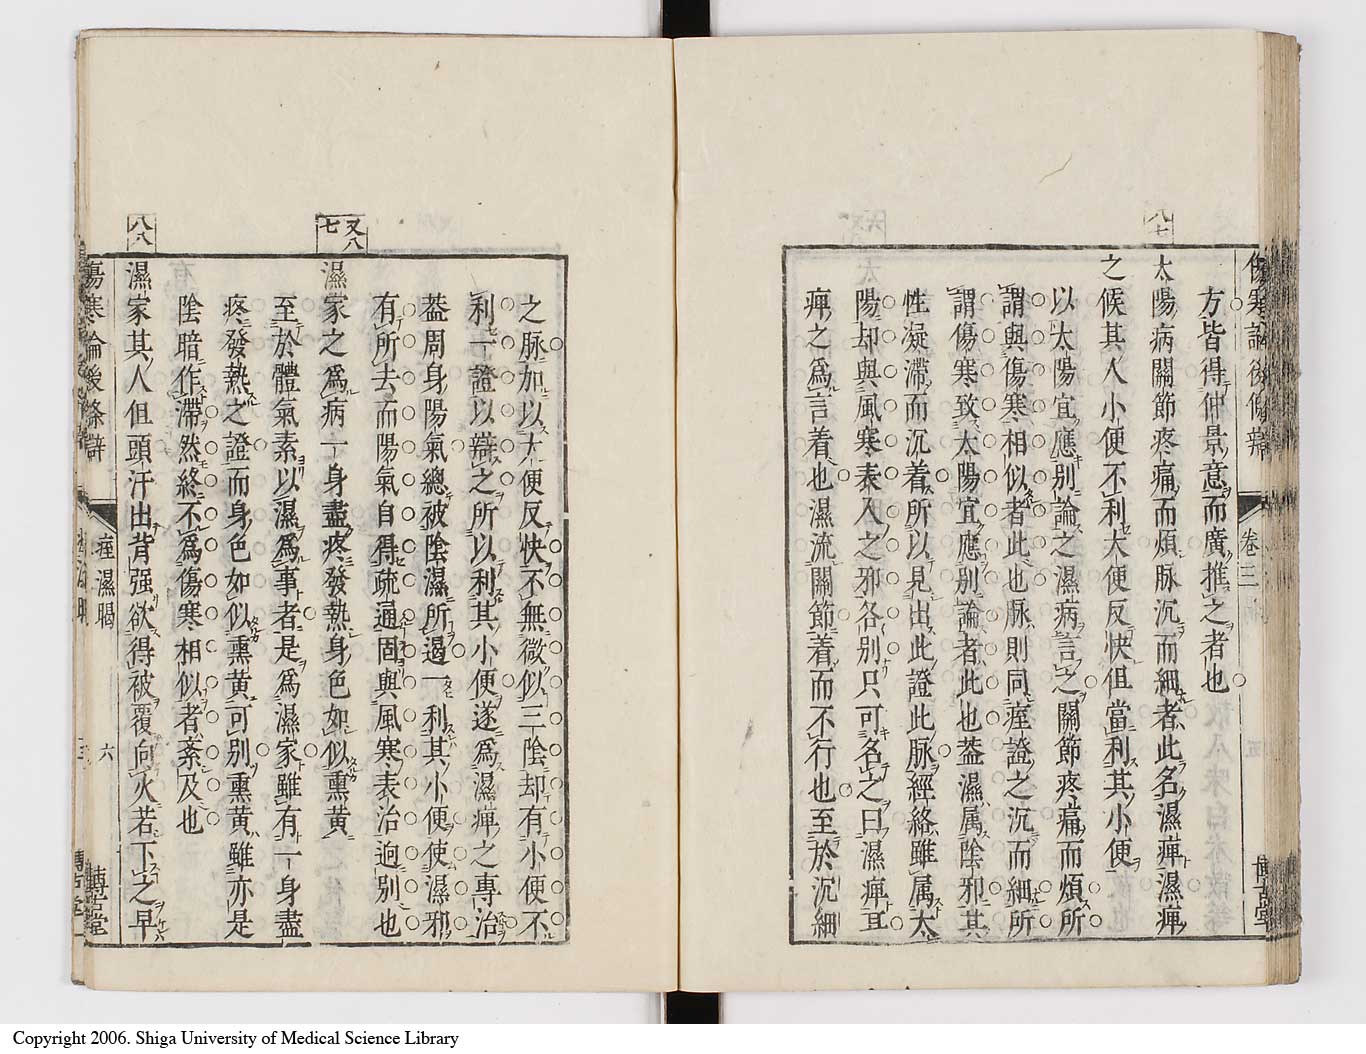 八七
傷寒論後條辨
卷三
博古堂
方皆得仲景意而廣推之者也
太陽病關節疼痛而煩脉沉而細者此名濕痺濕痺
之候其人小便不利大便反快但當利其小便
以太陽宜應別論之濕病言之關節疼痛而煩所
謂與傷寒相似者此也脉則同痙證之沉而細所
謂傷寒致太陽宜應別論者此也葢濕属陰邪其
性凝滯而沉着所以見出此證此脉經絡雖属太
陽却與風寒表入之邪各別只可名之曰濕痺耳
痺之爲言着也濕流關節着而不行也至於沉細
之脉加以大便反快不無微似三陰却有小便不
利一證以辯之所以利其小便遂爲濕痺之專治
葢周身陽氣總被陰濕所遏一利其小便使濕邪
有所去而陽氣自得疏通固與風寒表治逈別也
又八七
濕家之爲病一身盡疼發熱身色如似熏黄
至於體氣素以濕爲事者是爲濕家雖有一身盡
疼發熱之證而身色如似熏黄可別熏黄雖亦是
陰暗作滯然終不爲傷寒相似者紊及也
八八
濕家其人但頭汗出背强欲得被覆向火若下之早
傷寒論後條辨
痙濕暍
六
博古堂